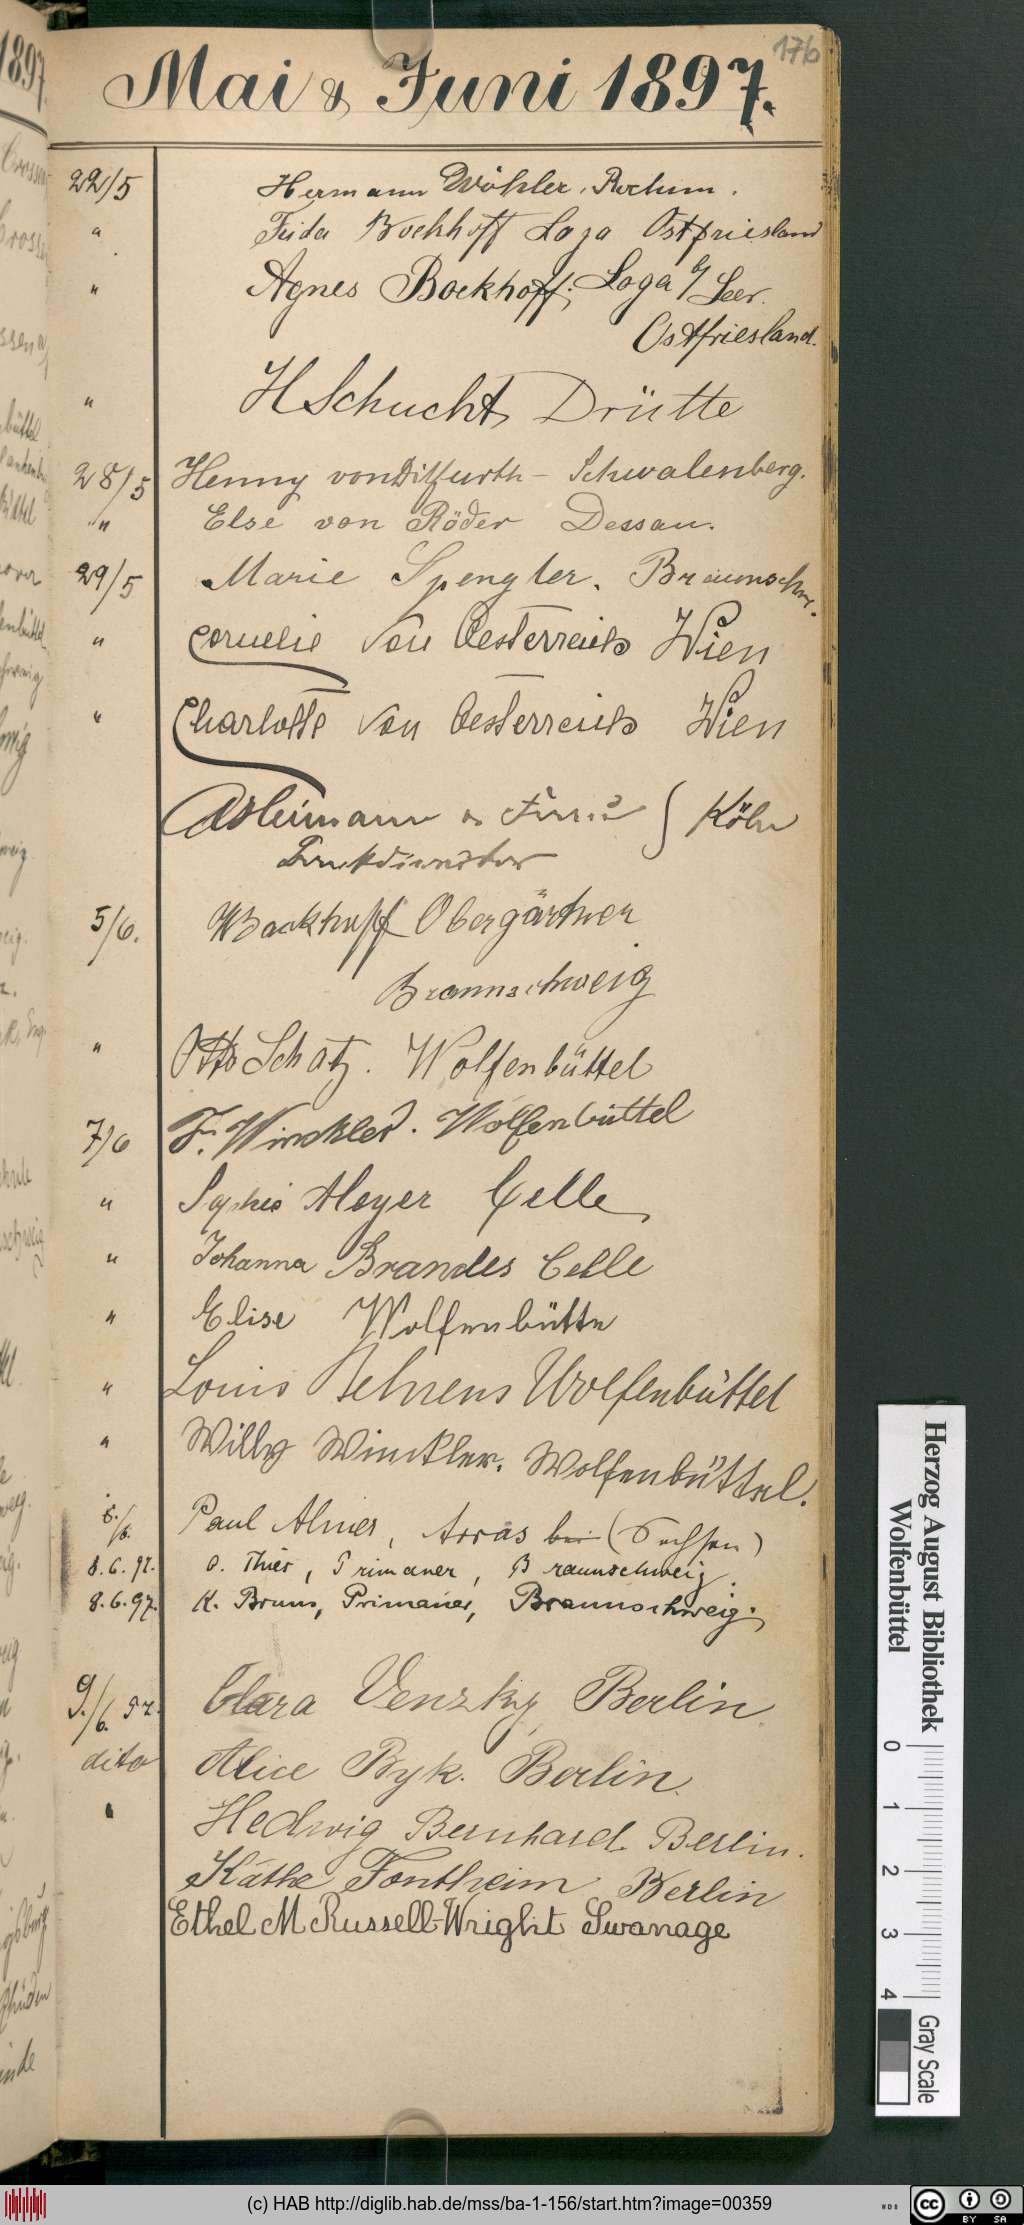 176
Mai & Juni 1897.
22/5 Hermann Wöhler, Bochum.
" Frida Boekhoff Loga Ostfriesland
" Agnes Boekhoff, Loga b/ Leer.
Ostfriesland.
" H Schucht, Drütte
28/5 Henny von Ditfurth - Schwalenberg.
" Else von Röder Dessau.
29/5 Marie Spengler, Braunschw.
" Cornelie von Oesterreich Wien
" Charlotte von Oesterreich Wien
Köln
5/6. Backhoff Obergärtner
Braunschweig
" Otto Schatz. Wolfenbüttel
7/6 F. Winckler. Wolfenbüttel
" Sophie Meyer Celle
" Johanna Brandes Celle
" Elise Wolfenbütte
" Louis Behrens Wolfenbüttel
" Willy Winckler. Wolfenbüttel.
8./6. Paul Almer, Arras bei (Sachsen)
8.6.97. O. Thies, Primaner, Braunschweig.
8.6.97. K. Bruns, Primaner, Braunschweig.
9./6. 97. Clara Venzky Berlin.
dito Alice Byk. Berlin.
" Hedwig Bernhard. Berlin.
Käthe Fontheim Berlin
Ethel M Russell-Wright Swanage
Herzog August Bibliothek
Wolfenbüttel
0 1 2 3 4
Gray Scale
(c) HAB http://diglib.hab.de/mss/ba-1-156/start.htm?image=00359
WDB
cc BY SA